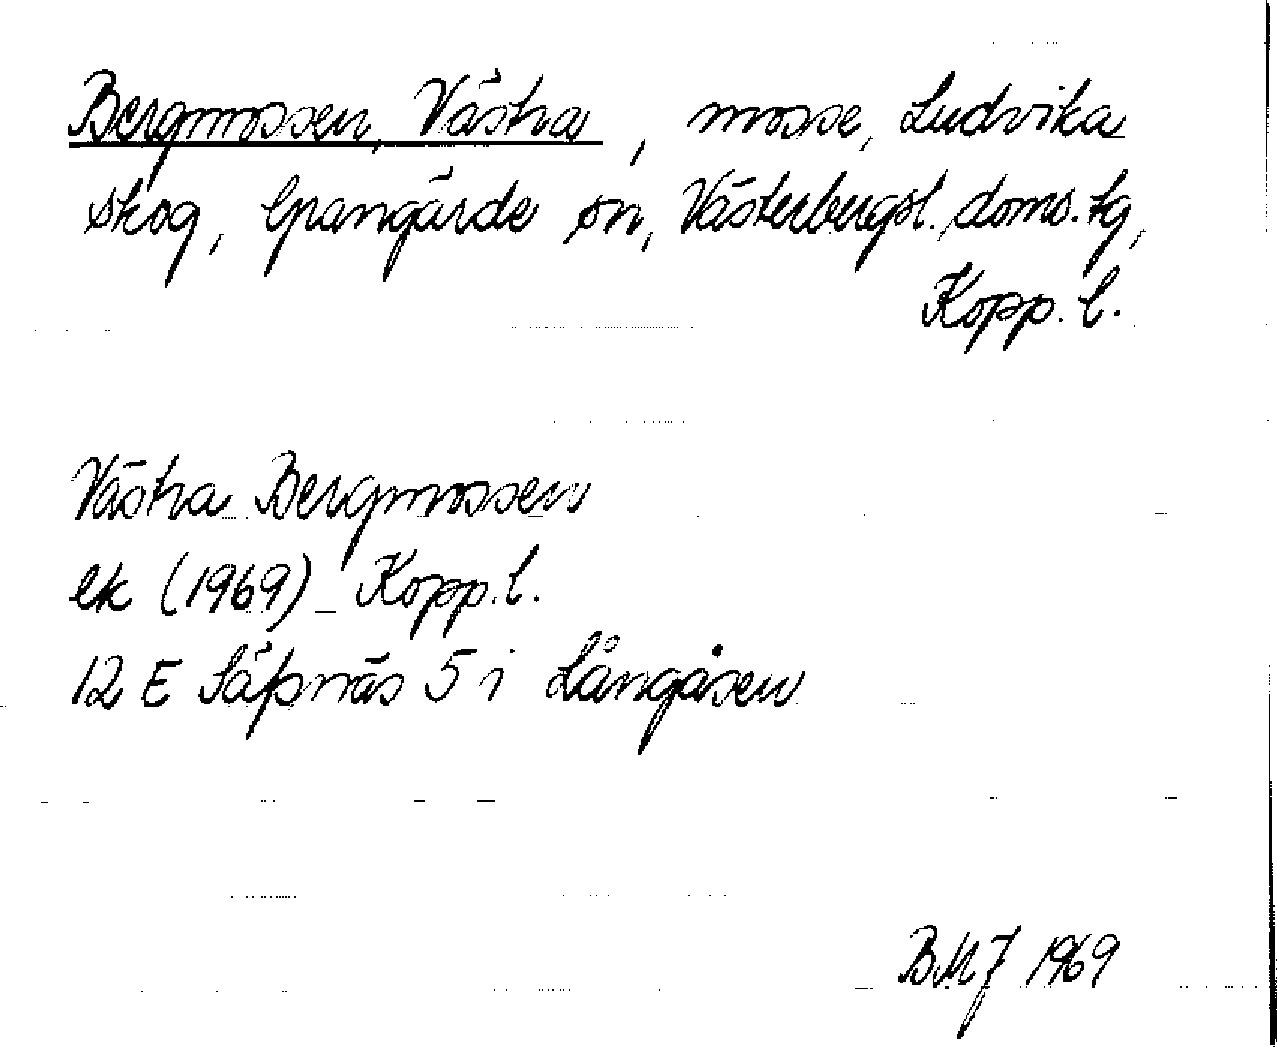 Bergmossen, Västra, mosse, Ludvika
skog, Grangärde sn, Västerbergsl. doms. tg,
Kopp. l.
Västra Bergmossen
ek (1969) Kopp. l.
12 E Säfsnäs 5 i Långåsen
BMJ 1969